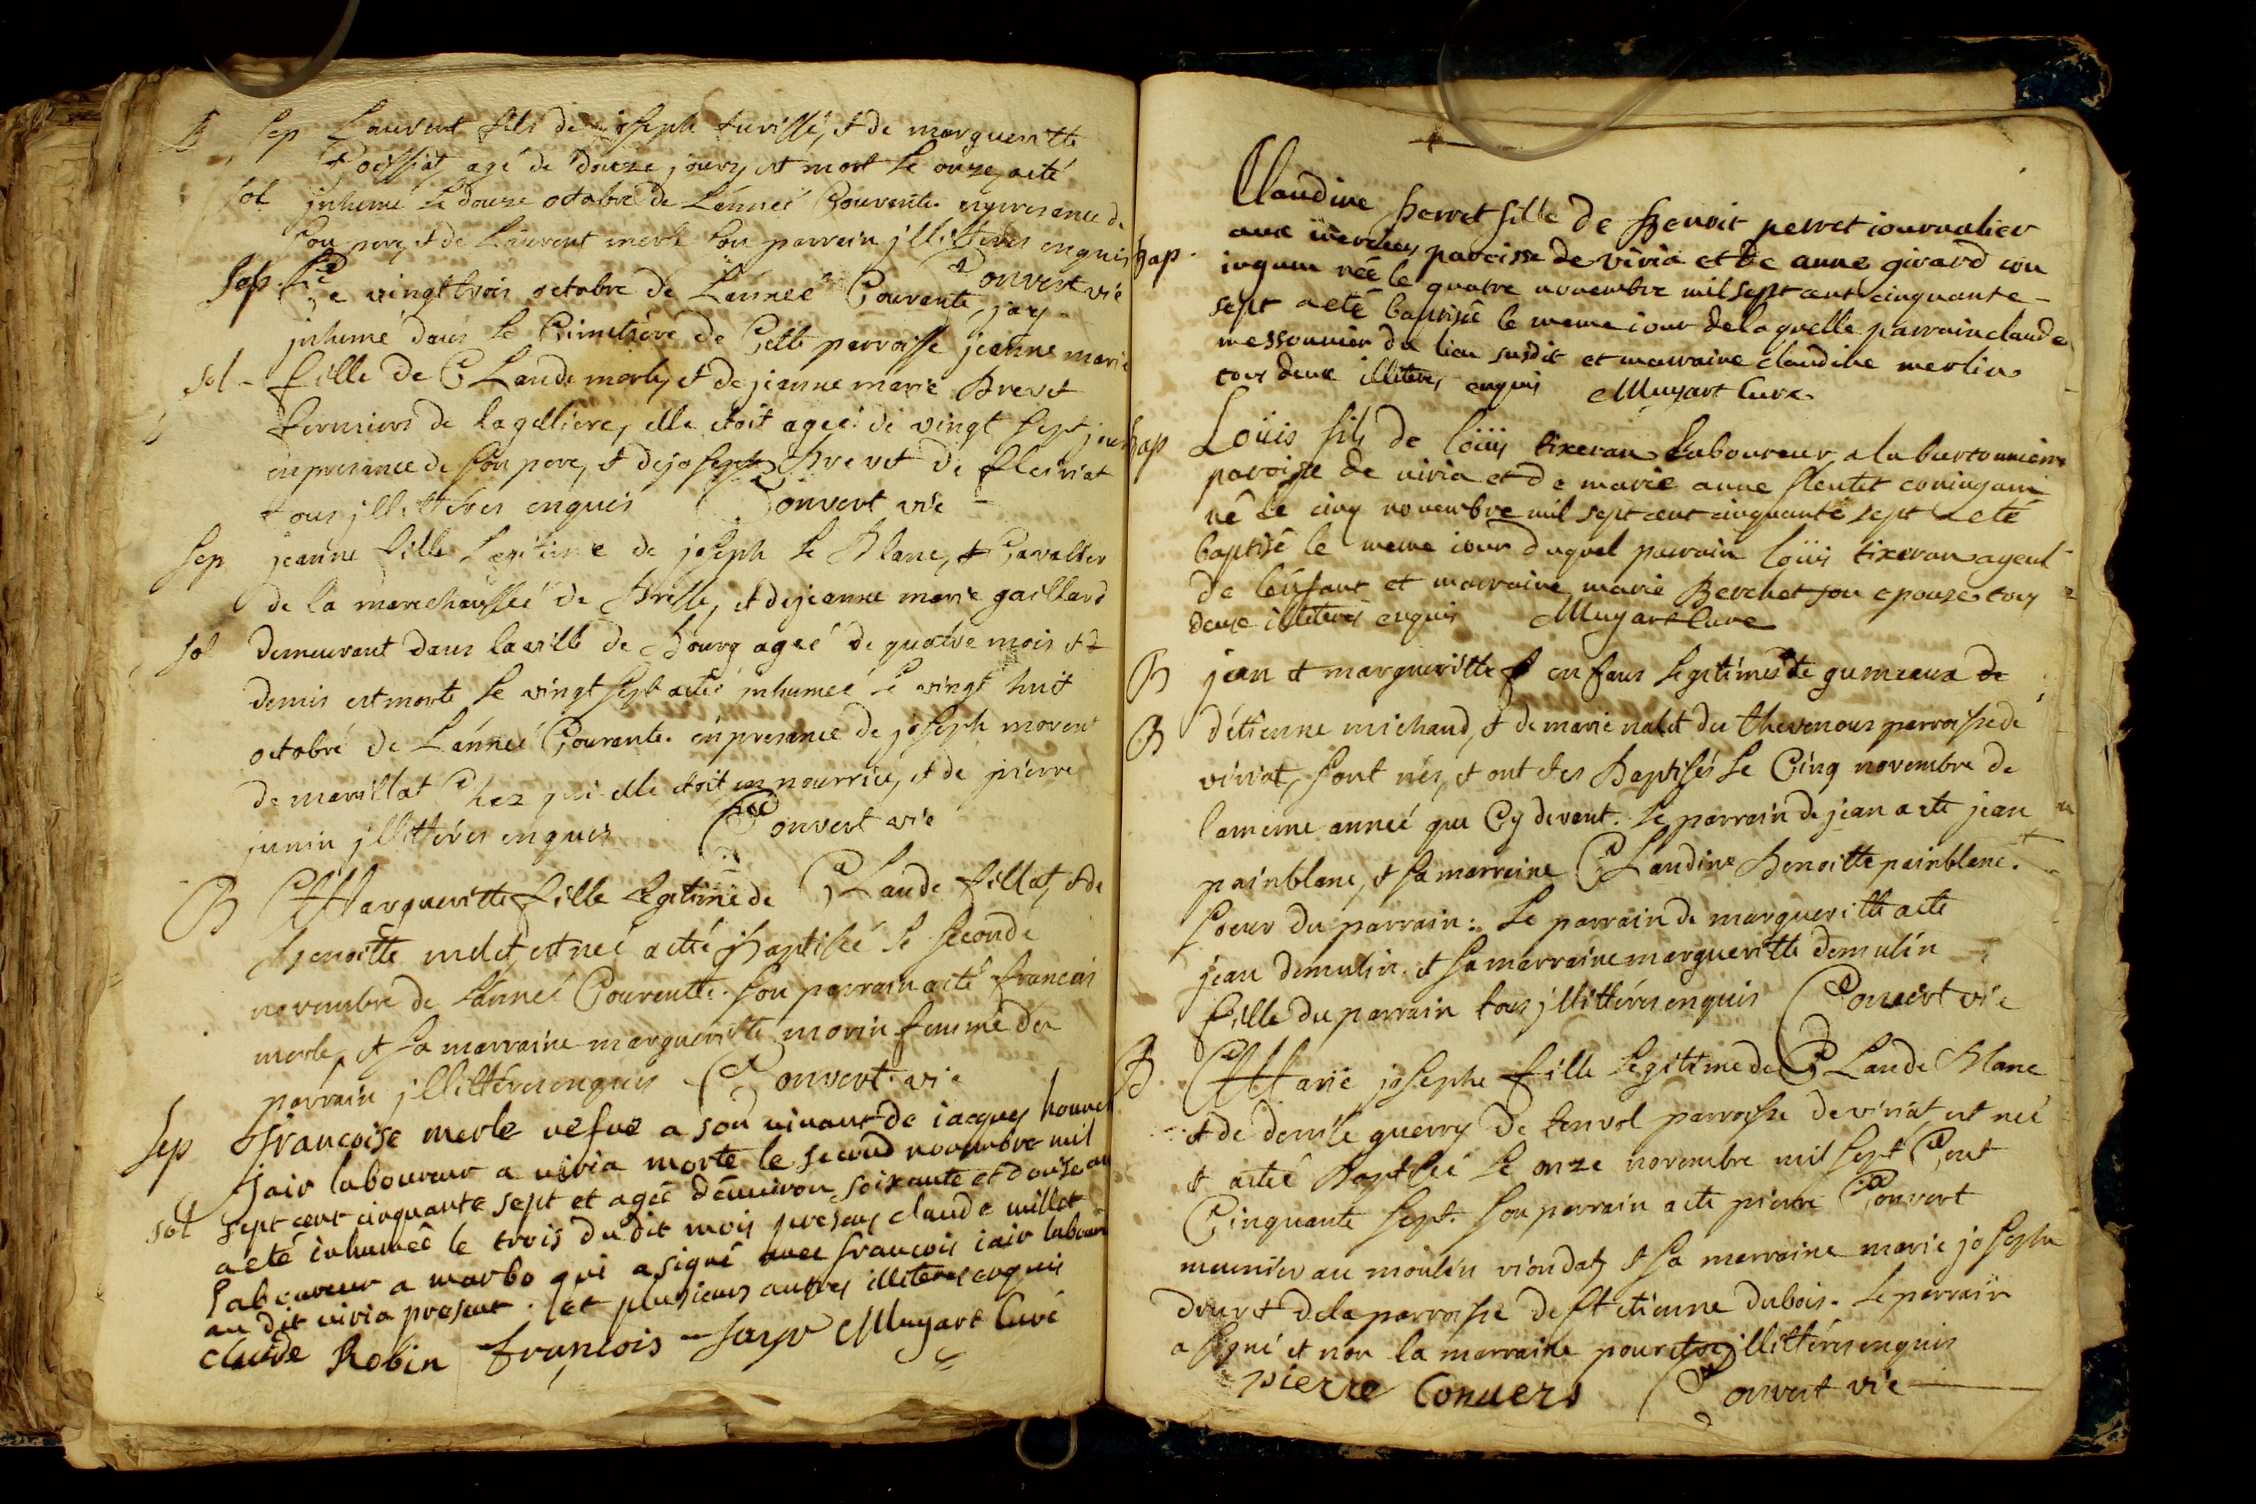 B Sep Laurent fils de joseph turissé, et de margueritte
Poissiat, agé de douze jours, est mort le onze, a eté
sol inhumé le douze octobre de L'année Courente en presence de
son pere, et de Laurent merle son parrain jllitteres enquis
Convert vic
Sep Le vingt trois octobre de L'année Courante, jay
inhumé dans le Cimetière de Cette parroisse jeanne marie
sol fille de CLaude merle, et de jeanne marie Brevet
fermiers de la gelliere, elle etoit ageé de vingt sept jours
en presence de son pere, et de joseph Brevet de fleiriat
tous jllitteres enquis Convert vic
Sep jeanne fille Legitime de joseph le Blanc, Cavallier
de la marechausseé de Bresse, et de jeanne marie gaillard
sol demeurant dans la ville de bourg ageé de quatre mois et
demis est morte le vingt sept a eté inhumeé le vingt huit
octobre de L'année Courante en presence de joseph morent
de marillat Chez qui elle etoit en nourrice, et de pierre
junin jllitteres enquis Convert vic
B Margueritte fille Legitime de CLaude fillat, et de
Benoitte melet, est neé a eté Baptiseé le second
novembre de L'année Courentte. son parrain a eté francois
merle, et sa marraine margueritte morin femme du
parrain jllitteres enquis Convert vic
Sep francoise merle vefve a son vivant de iacques
jair laboureur a viria morte le second novembre mil
sol sept cent cinquante sept et ageé d'environ soixante et douse an
a eté inhumeé le trois du dit mois presens claude millet
Laboureur a marbo qui a signé avec francois iair laboureur
au dit viria present. et plusieurs autres illiteres enquis
claude Robin francois jayr Muyart Curé
Claudine perret fille de Benoit perret iournalier
aux paroisse de viria et de anne girard con
bap iugum née le quatre novembre mil sept cent cinquante
sept a eté baptiseé le meme iour de laquelle parrain claude
messonnier du lieu susdit et marraine claudine merlin
tous deux illiteres enquis Muyart Cure
bap Loüis fils de loüis tixeran Laboureur a la burtonniere
paroisse de viria et de marie anne flentet coniugum
né le cinq novembre mil sept cent cinquante sept a eté
baptisé le meme iour duquel parrain loüis tixeran ayeul
de l'enfant et marraine marie Berchet son epouse tous
deux illiteres enquis Muyart Cure
B jean et margueritte enfans Legitimes et gumeaux de
B d'étienne michaud, et de marie nalet du thevenous parroisse de
viriat, sont nés, et ont etes Baptisés le Cinq novembre de
la meme anneé que Cy devant. le parrain de jean a ete jean
painblanc, et sa marraine CLaudine Benoitte painblanc.
soeur du parrain: le parrain de margueritte a ete
jean demulin, et sa marraine margueritte demulin
fille du parrain tous jllittéres enquis Convert vic
B Marie josephe fille Legitime de CLaude Blanc
et de denise guerry de tenvol parroisse de viriat, est neé
et a eté Baptiseé le onze novembre mil sept Cent
Cinquante sept. son parrain a ete pierre Convert
meunier au moulin riondat, et sa marraine marie josephe
druet de la parroisse de st etienne dubois. Le parrain
a signé et non la marraine pour etre jllittéres enquis
pierre Convers Convert vic